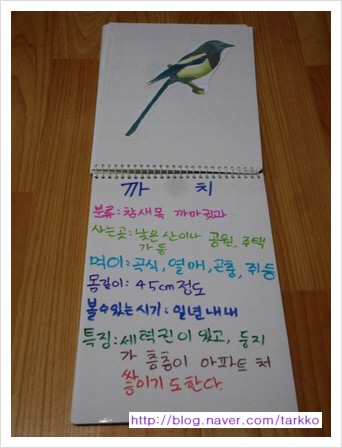 까 치
분류: 참새목 까마귀과
사는곳: 낮은 산이나 공원, 주택
가 등
먹이: 곡식, 열매, 곤충, 쥐 등
몸길이: 45cm 정도
볼수있는 시기: 일년 내내
특징: 세력권이 있고, 둥지
가 층층이 아파트 처
럼 쌓이기도 한다.
http://blog.naver.com/tarkko